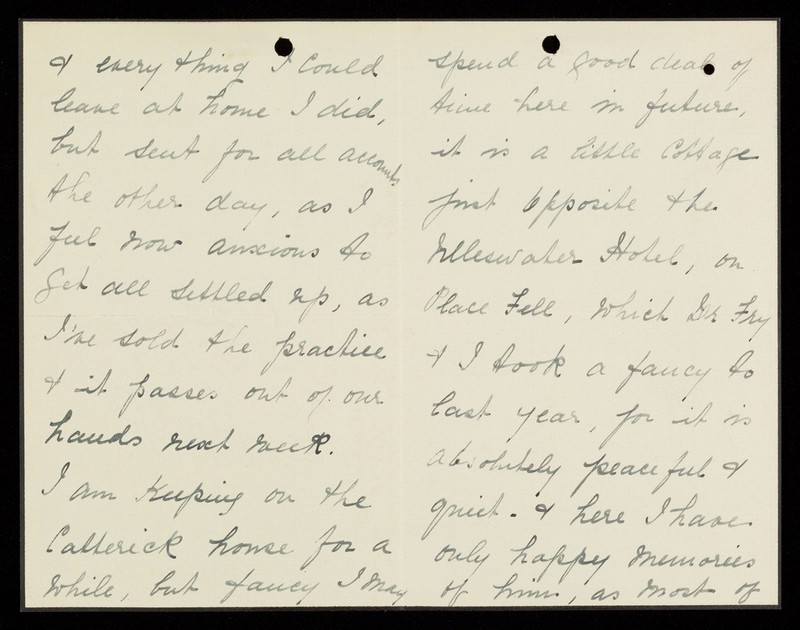 & every thing I could
leave at home I did,
but sent for all accounts
the other day, as I
feel now anxious to
get all settled up, as
I've sold the practice
& it passes out of our
hands next week.
I am keeping on the
Catterick house for a
while, but fancy I may
spend a good deal of
time here in future,
it is a little cottage
just opposite the
Ulleswater Hotel, on
Place Fell, which Dr. Fry
& I took a fancy to
last year, for it is
absolutely peaceful &
quiet - & here I have
only happy memories
of him, as most of